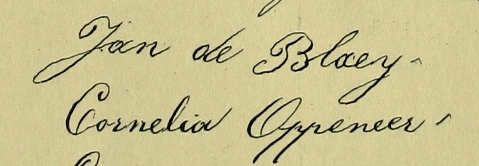 Jan de Blaey
Cornelia Oppeneer